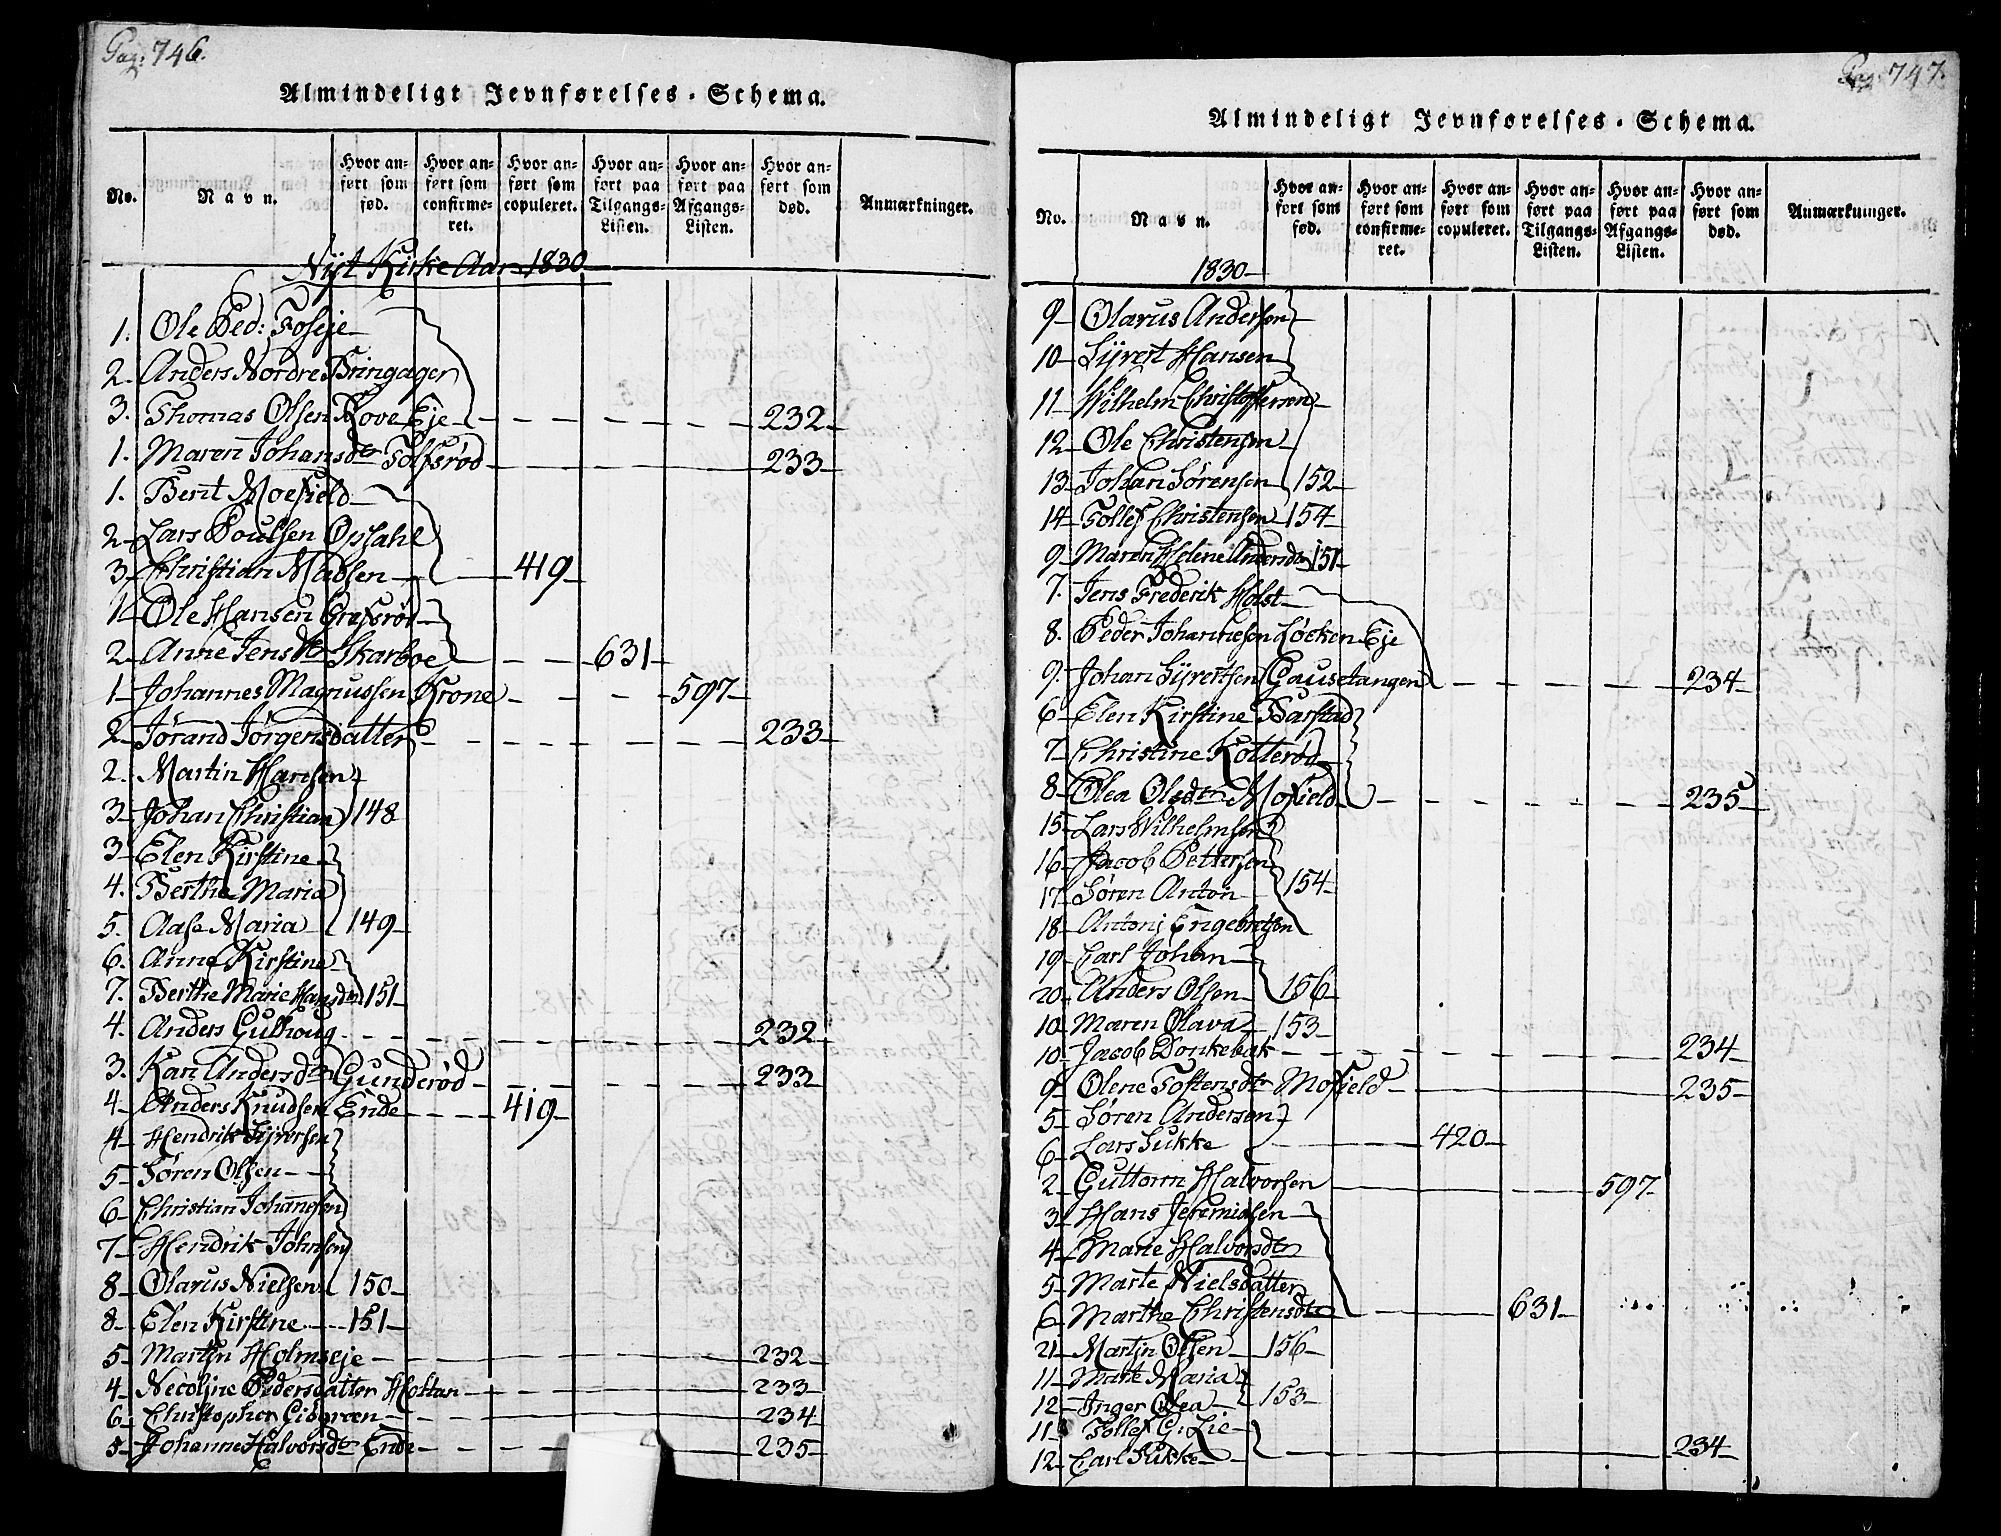 Pag: 746.
Almindeligt Jevnførelses-Schema.
No. Navn. Hvor anført som fød. Hvor anført som confirmeret. Hvor anført som copuleret. Hvor anført paa Tilgangs-Listen. Hvor anført paa Afgangs-Listen. Hvor anført som død. Anmærkninger.
Nyt Kirke Aar 1830
1. Ole Ped: Foseje
2 Anders Nordre Bringager
3. Thomas Olsen Rove Eje 232
1. Maren Johansdtr Tolfsrød 233
1. Berit Moefield
2 Lars Poulsen Opsahl
3 Christian Madsen 419
1 Ole Hansen Grefsrød
2 Anne Jensdtr Skarboe 631
1 Johannes Magnussen Krone 597
2 Jørand Jørgensdatter 233
2. Martin Hansen
3 Johan Christian 148
3 Elen Kirstine
4. Berthe Maria
5. Aase Maria 149
6. Anne Kirstine
7. Berthe Marie Hansdtr 151
4. Anders Gulhoug 232
3. Kari Andersdtr Gunderød 233
4 Anders Knudsen Ende 419
4 Hendrik Syversen
5 Søren Olsen
6 Christian Johannsen
7 Hendrik Johnsen
8 Olarus Nielsen 150
8 Elen Kirstine 151
5 Martin Holmseje 232
4 Necoline Pedersdatter Holtan 233
6 Christopher Gidgreen 234
5 Johanne Halvorsdtr Ende 235
Pag: 747.
Almindeligt Jevnførelses-Schema.
No. Navn. Hvor anført som fød. Hvor anført som confirmeret. Hvor anført som copuleret. Hvor anført paa Tilgangs-Listen. Hvor anført paa Afgangs-Listen. Hvor anført som død. Anmærkninger.
1830
9 Olarus Andersen
10 Syvert Hansen
11 Wilhelm Christophersen
12 Ole Christensen
13 Johan Sørensen 152
14 Tollef Christensen 154
9 Maren Helene Andersdtr 151
7. Jens Frederik Holst
8. Peder Johannesen Løcken Eje
9. Johan Syvertsen Gausetangen 234
6 Elen Kirstine Barstad
7 Christine Kotterød
8 Olea Olsdtr Mofield 235
15 Lars Wilhelmsen
16 Jacob Pettersen
17 Søren Anton 154
18 Antonj Engebretsen
19 Carl Johan
20 Anders Olsen 156
10 Maren Olava 153
10 Jacob Donkebak 234
9 Olene Tostensdtr Mofield 235
5 Søren Andersen
6 Lars Sukke 420
2 Guttorm Halvorsen 597
3 Hans Jeremiasen
4 Marie Halvorsdtr
5 Marte Nielsdatter
6 Marthe Christensdtr 631
21 Martin Olsen 156
11 Marte Maria
12 Inger Olea 153
11 Tollef G: Lie
12 Carl Sukke 234